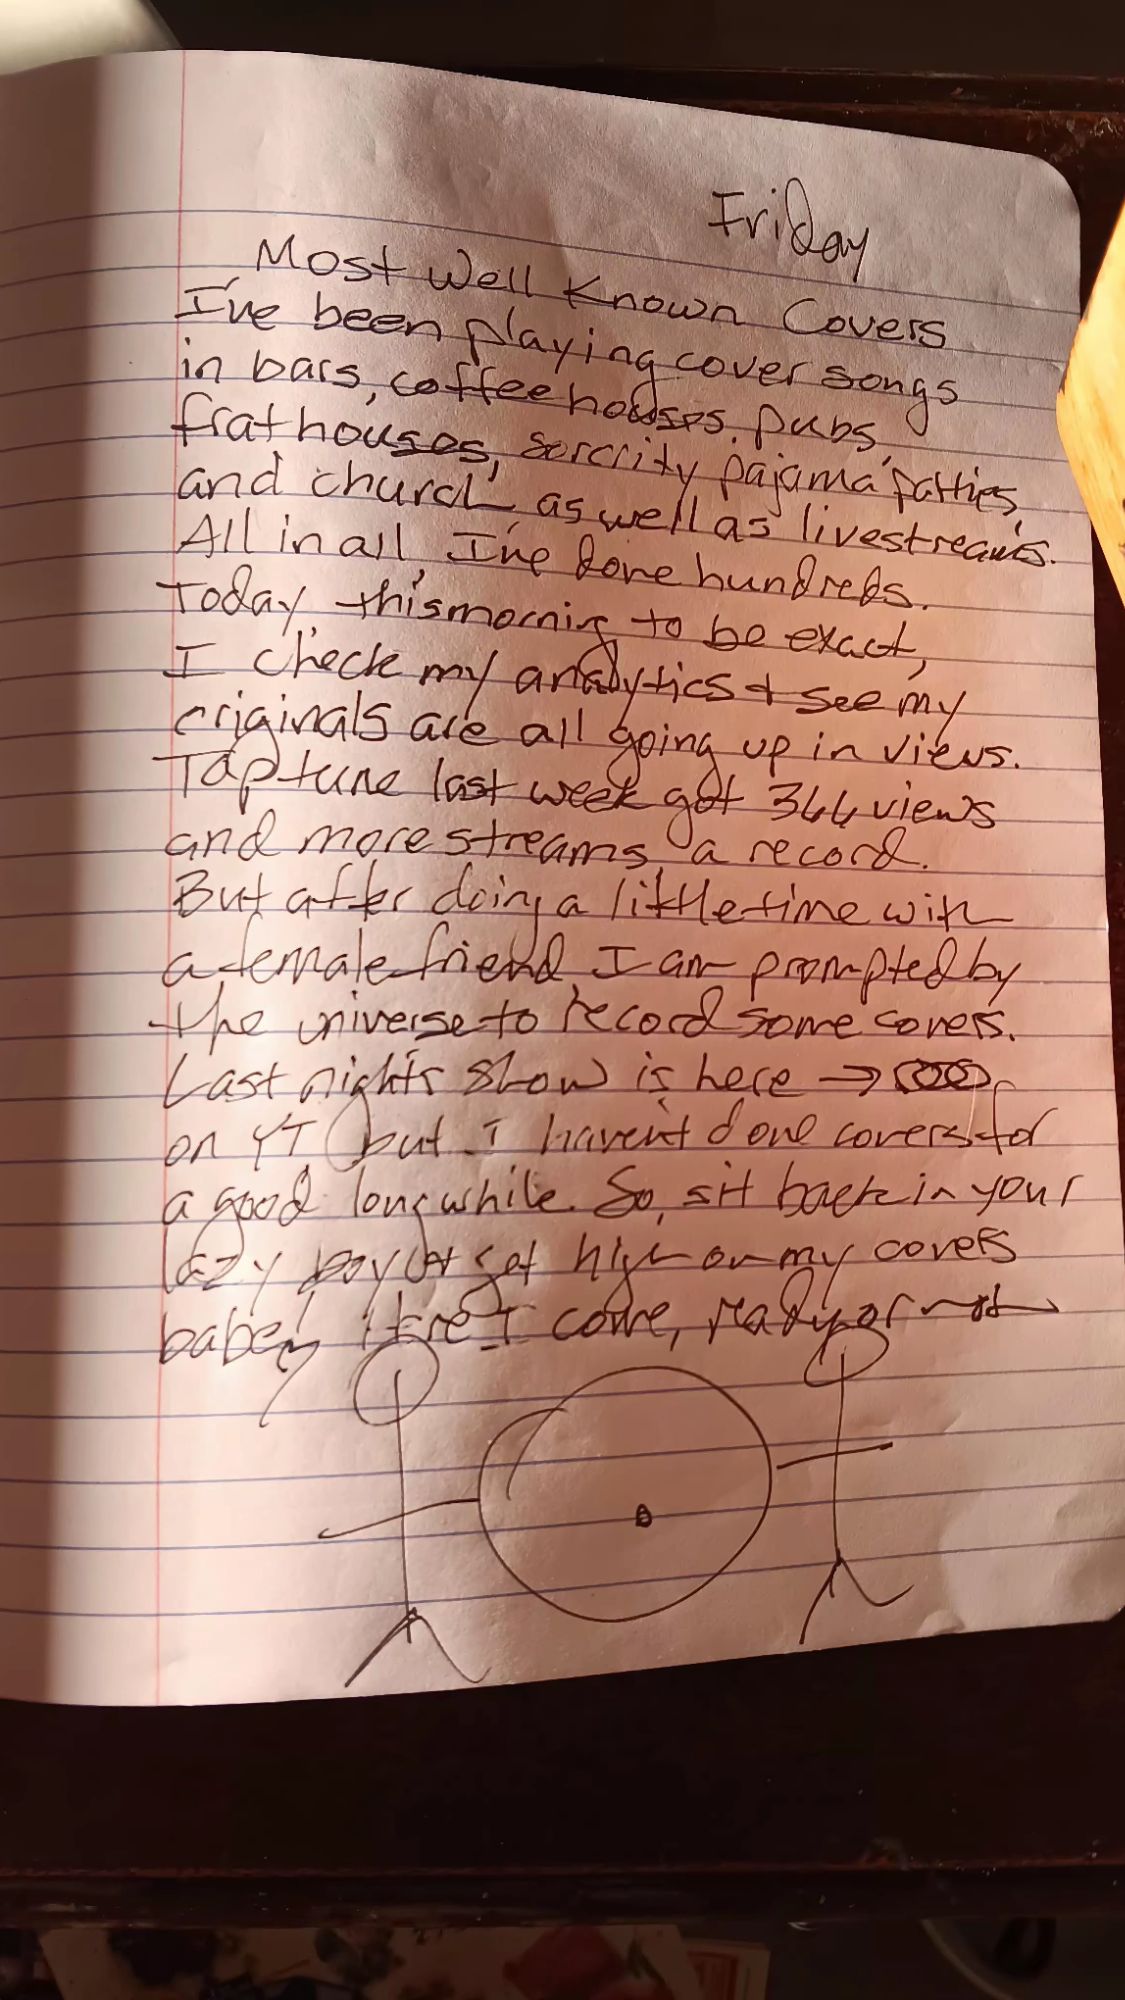 Friday
Most Well Known Covers
I've been playing cover songs
in bars, coffee houses, pubs,
frat houses, sorority pajama parties,
and church, as well as livestreams.
All in all, I've done hundreds.
Today, this morning to be exact,
I check my analytics + see my
originals are all going up in views.
Top tune last week got 344 views
and more streams a record.
But after doing a little time with
a female friend, I am prompted by
the universe to record some covers.
Last nights show is here →
on YT but I haven't done covers for
a good long while. So, sit back in your
lazy boy get high on my covers
babe! Here I come, ready or not